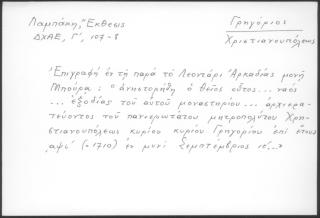 Λαμπάκη, "Εκθεσις
ΔΧΑΕ, Γ', 107-8
Γρηγόριος
Χριστιανουπόλεως
Ἐπιγραφή ἐν τῇ παρά τὸ Λεοντάρι Ἀρκαδίας μονῇ
Μπούρα: "ἀνηστορήθη ὁ θεῖος οὗτος... ναὸς
... ἐξοδίας τοῦ αὐτοῦ μοναστηρίου ... ἀρχιερα-
τεύοντος τοῦ πανιερωτάτου μητροπολίτου Χρη-
στιανουπόλεως κυρίου κυρίου Γρηγορίου ἐπί ἔτους
αψι' (=1710) ἐν μηνί Σεμπτέμβριος